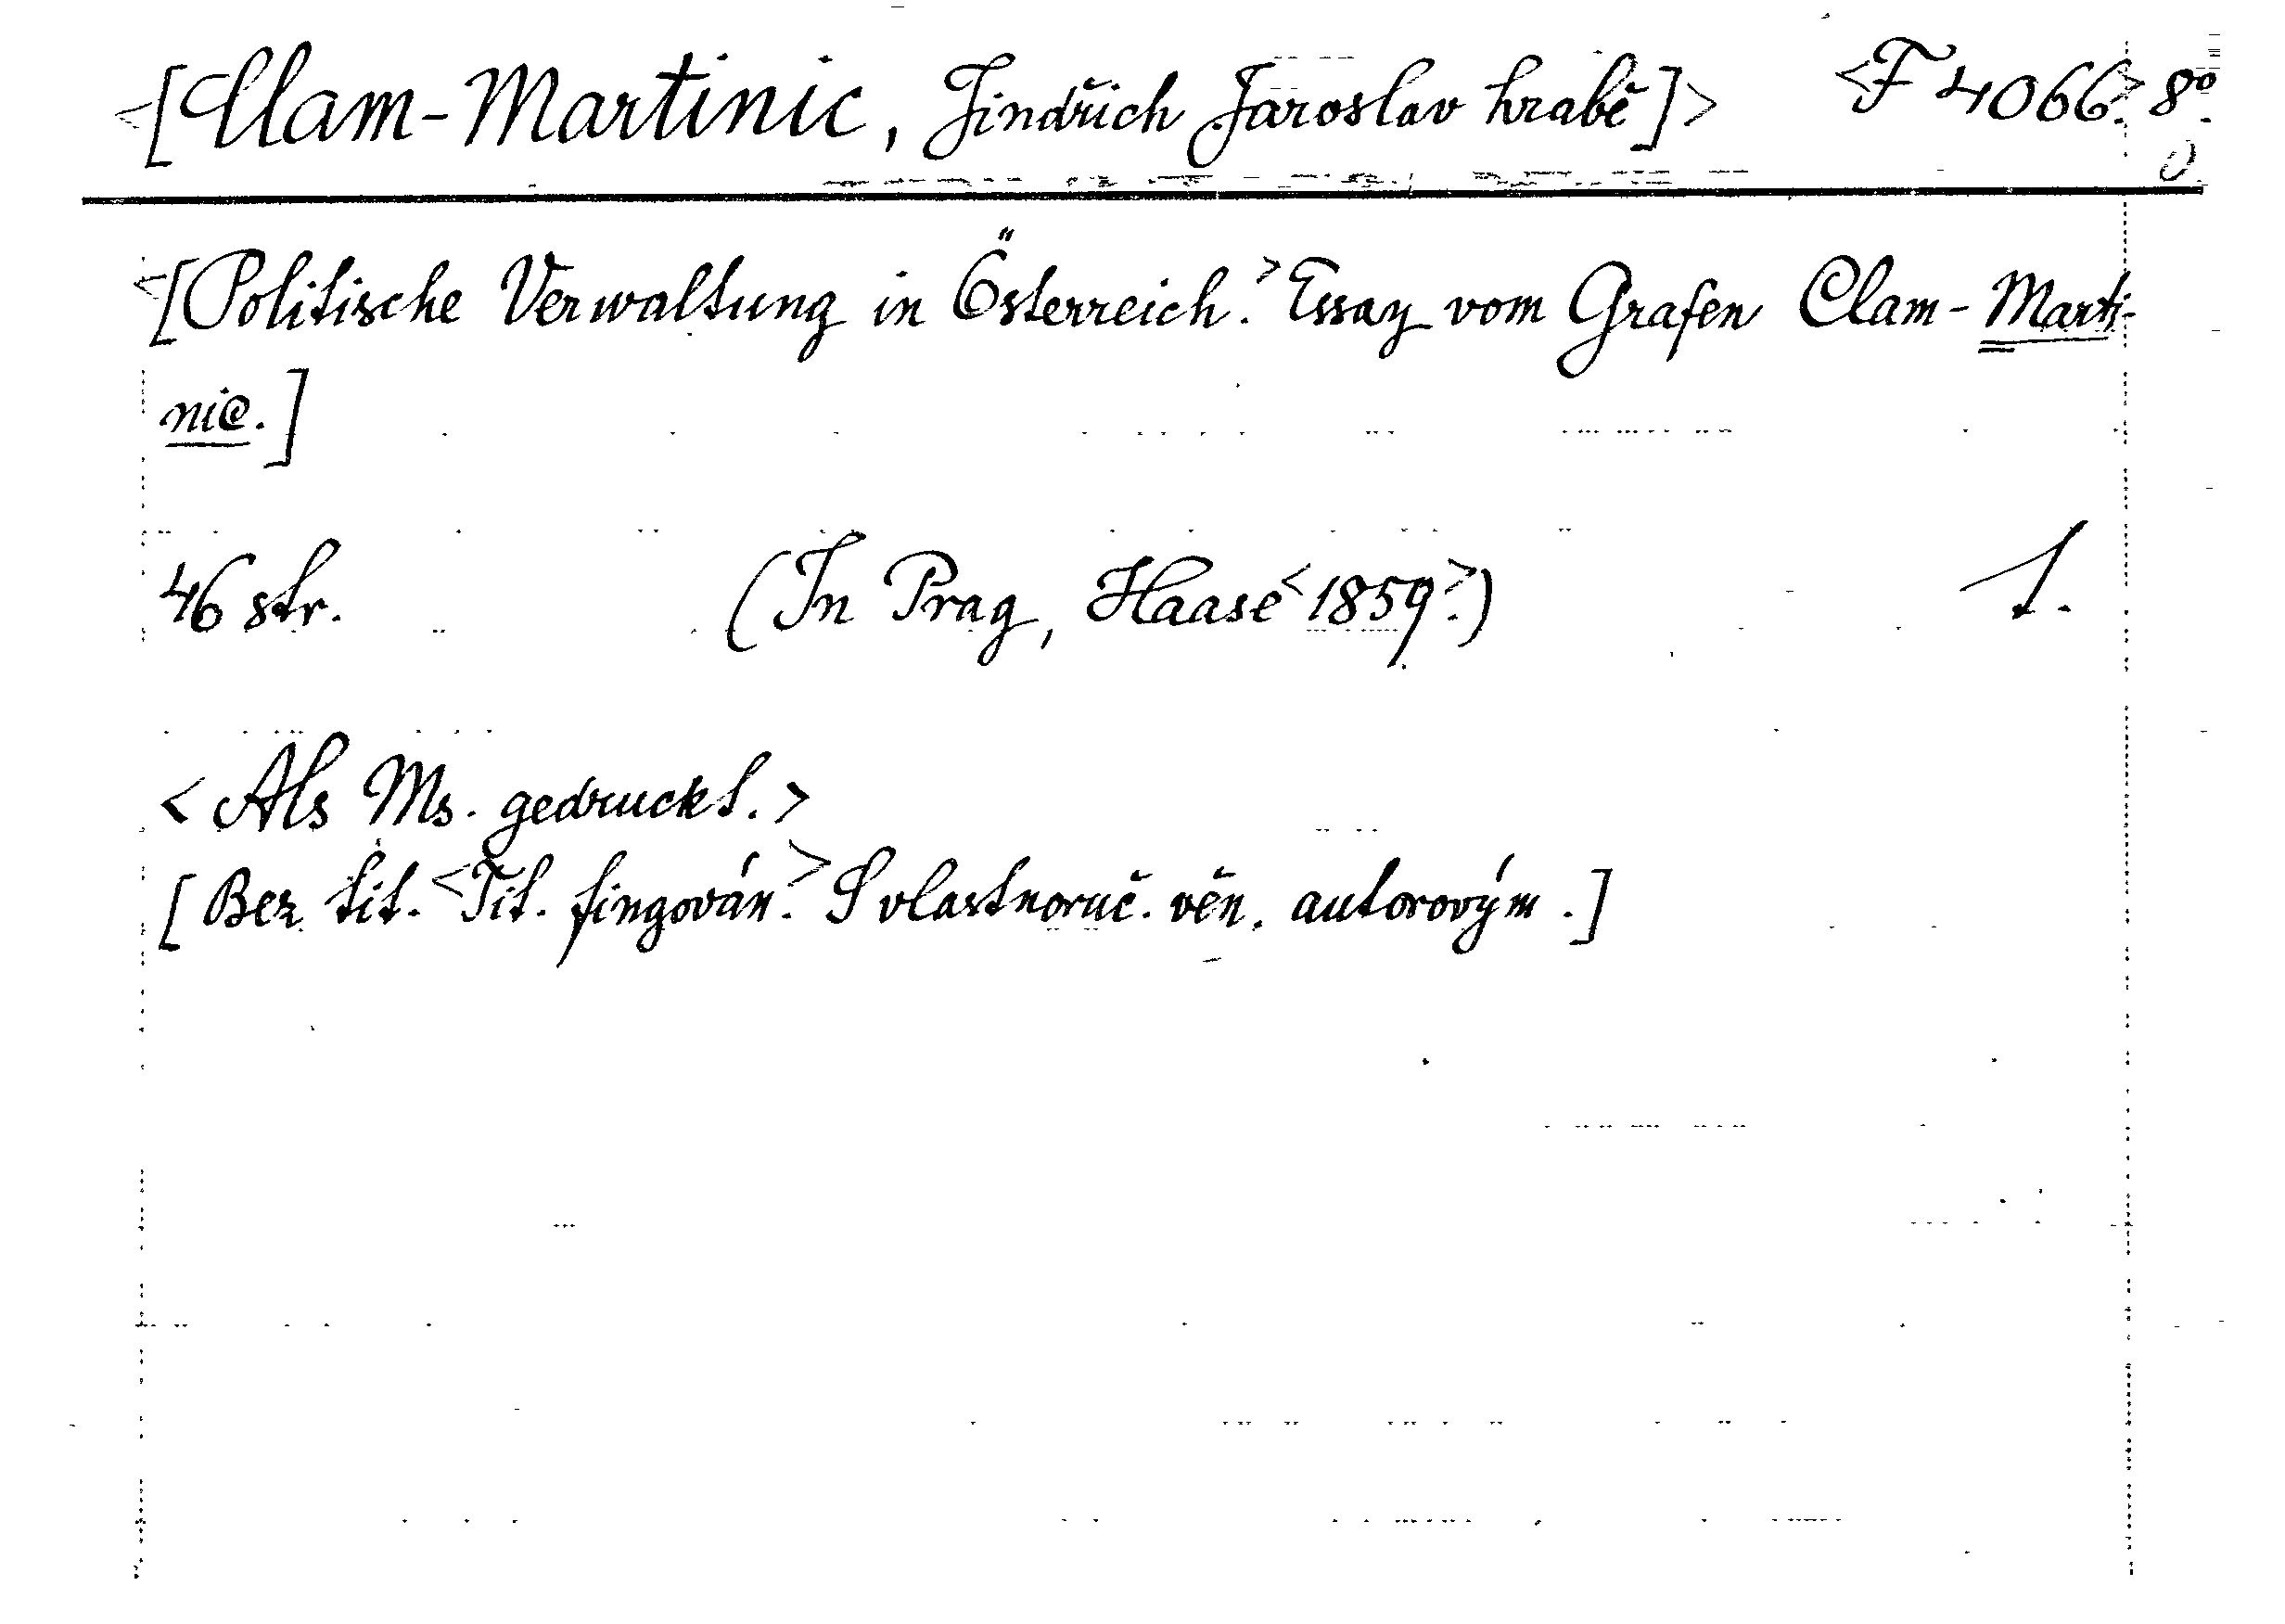 <[Clam-Martinic, Jindřich Jaroslav hrabě]> <F 4066.> 8º.
<[Politische Verwaltung in Österreich.> Essay vom Grafen Clam-Marti-
nic.]
46 str. (In Prag, Haase <1859.>) 1.
<Als Ms. gedruckt.>
[Bez tit. <Tit. fingován.> S vlastnoruč. věn. autorovým.]